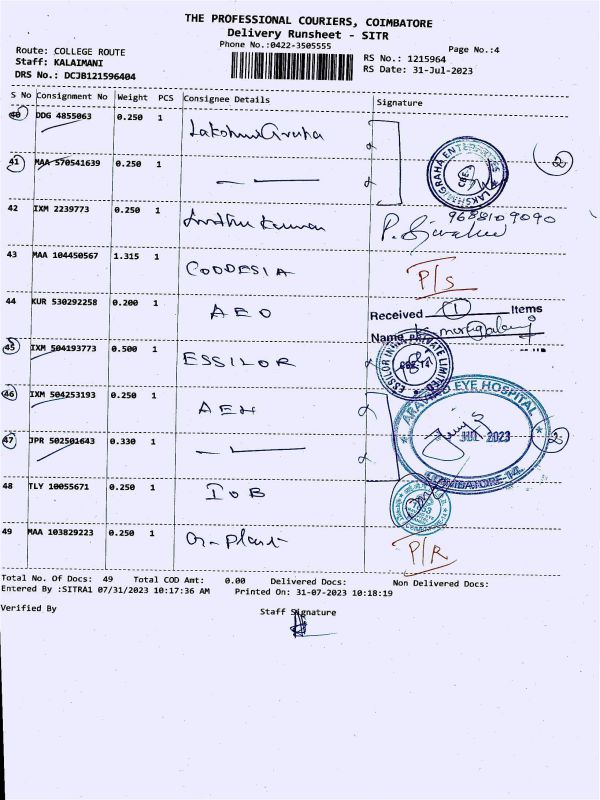 THE PROFESSIONAL COURIERS, COIMBATORE
Delivery Runsheet - SITR
Phone No.:0422-3505555
Page No.:4
Route: COLLEGE ROUTE
Staff: KALAIMANI
DRS No.: DCJB121596404
RS No.: 1215964
RS Date: 31-Jul-2023
S No Consignment No Weight PCS Consignee Details Signature
40 DDG 4855063 0.250 1 Lakshmi Graha
LAKSHMIGRAHA ENTERPRISES CBE
2
41 MAA 570541639 0.250 1
42 IXM 2239773 0.250 1 Kumar 9688109090
P.
43 MAA 104450567 1.315 1 CODDESIA P/S
44 KUR 530292258 0.200 1 AEO Received 1 Items
Name
45 IXM 504193773 0.500 1 ESSILOR
ESSILOR INDIA PRIVATE LIMITED
46 IXM 504253193 0.250 1 AEH
ARAVIND EYE HOSPITAL
JUL 2023
COIMBATORE-14.
2
47 JPR 502501643 0.330 1
48 TLY 10055671 0.250 1 IOB
49 MAA 103829223 0.250 1 P/R
Total No. Of Docs: 49 Total COD Amt: 0.00 Delivered Docs: Non Delivered Docs:
Entered By :SITRA1 07/31/2023 10:17:36 AM Printed On: 31-07-2023 10:18:19
Verified By Staff Signature